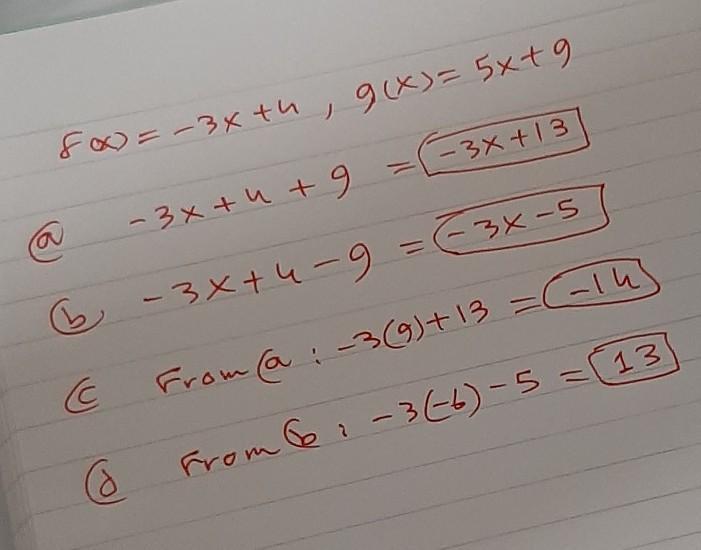 f(x) = -3x+4 , g(x) = 5x+9
(a) -3x+4+9 = -3x+13
(b) -3x+4-9 = -3x-5
(c From (a : -3(9)+13 = -14
(d From (b : -3(-6)-5 = 13